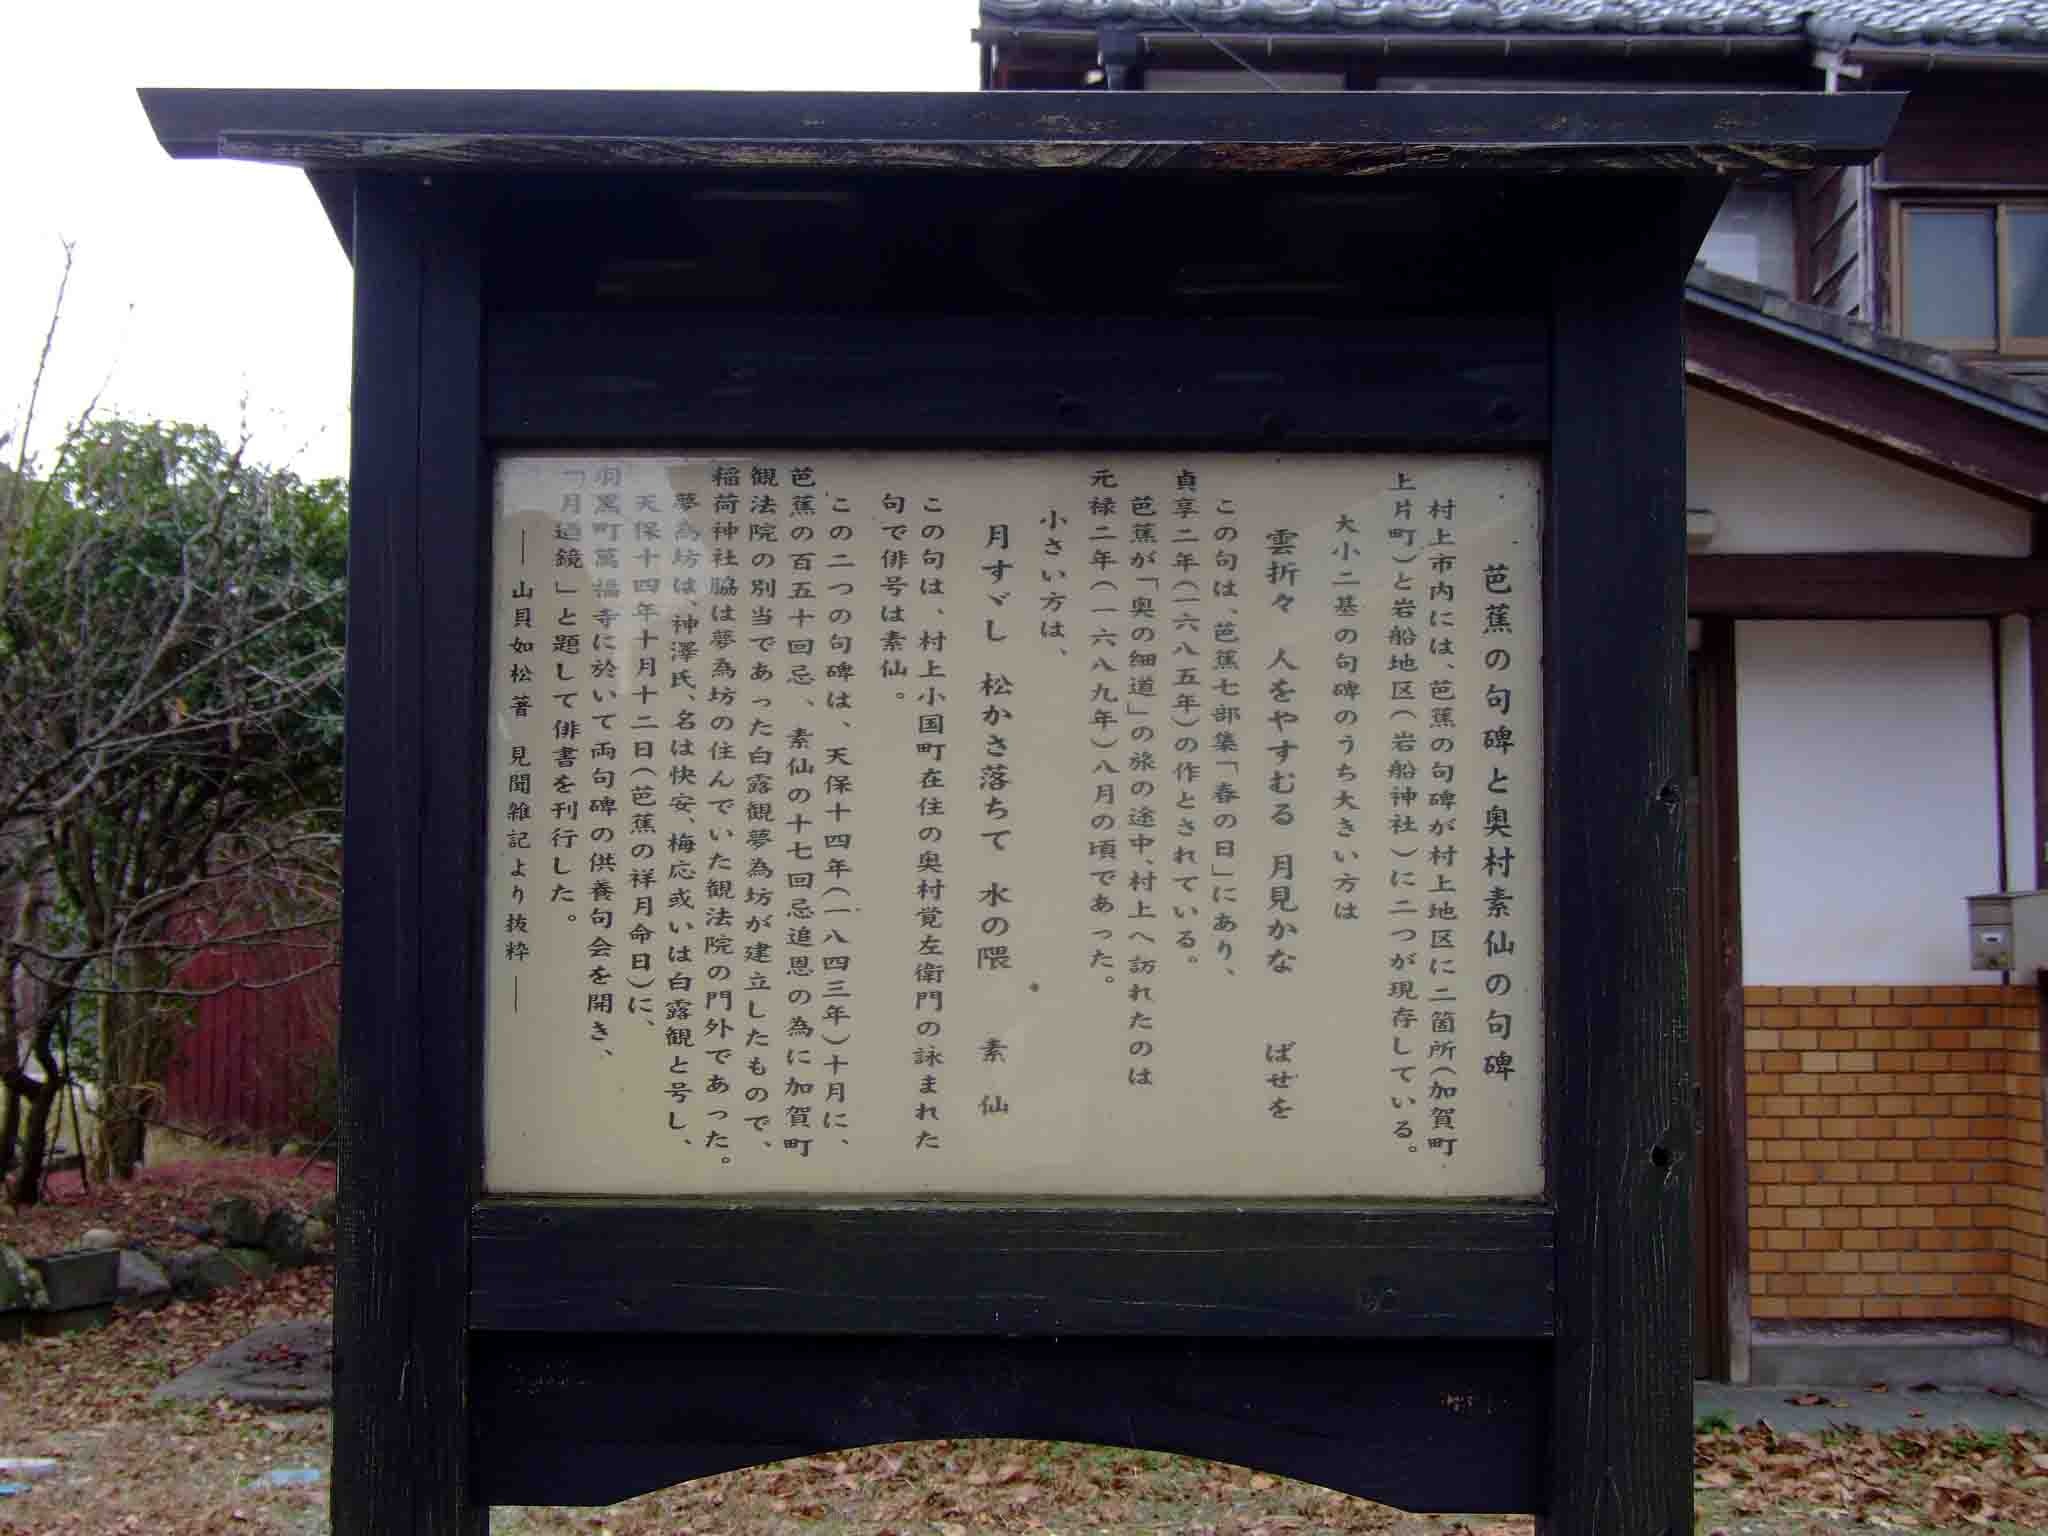 芭蕉の句碑と奥村素仙の句碑
村上市内には、芭蕉の句碑が村上地区に二箇所(加賀町
上片町)と岩船地区(岩船神社)に二つが現存している。
大小二基の句碑のうち大きい方は
雲折々 人をやすむる 月見かな ばせを
この句は、芭蕉七部集「春の日」にあり、
貞享二年(一六八五年)の作とされている。
芭蕉が「奥の細道」の旅の途中、村上へ訪れたのは
元禄二年(一六八九年)八月の頃であった。
小さい方は、
月すゞし 松かさ落ちて 水の隈 素仙
この句は、村上小国町在住の奥村覚左衛門の詠まれた
句で俳号は素仙。
この二つの句碑は、天保十四年(一八四三年)十月に、
芭蕉の百五十回忌、素仙の十七回忌追恩の為に加賀町
観法院の別当であった白露観夢為坊が建立したもので、
稲荷神社脇は夢為坊の住んでいた観法院の門外であった。
夢為坊は、神澤氏、名は快安、梅応或いは白露観と号し、
天保十四年十月十二日(芭蕉の祥月命日)に、
羽黒町萬福寺に於いて両句碑の供養句会を開き、
「月廼鏡」と題して俳書を刊行した。
― 山貝如松著 見聞雑記より抜粋 ―